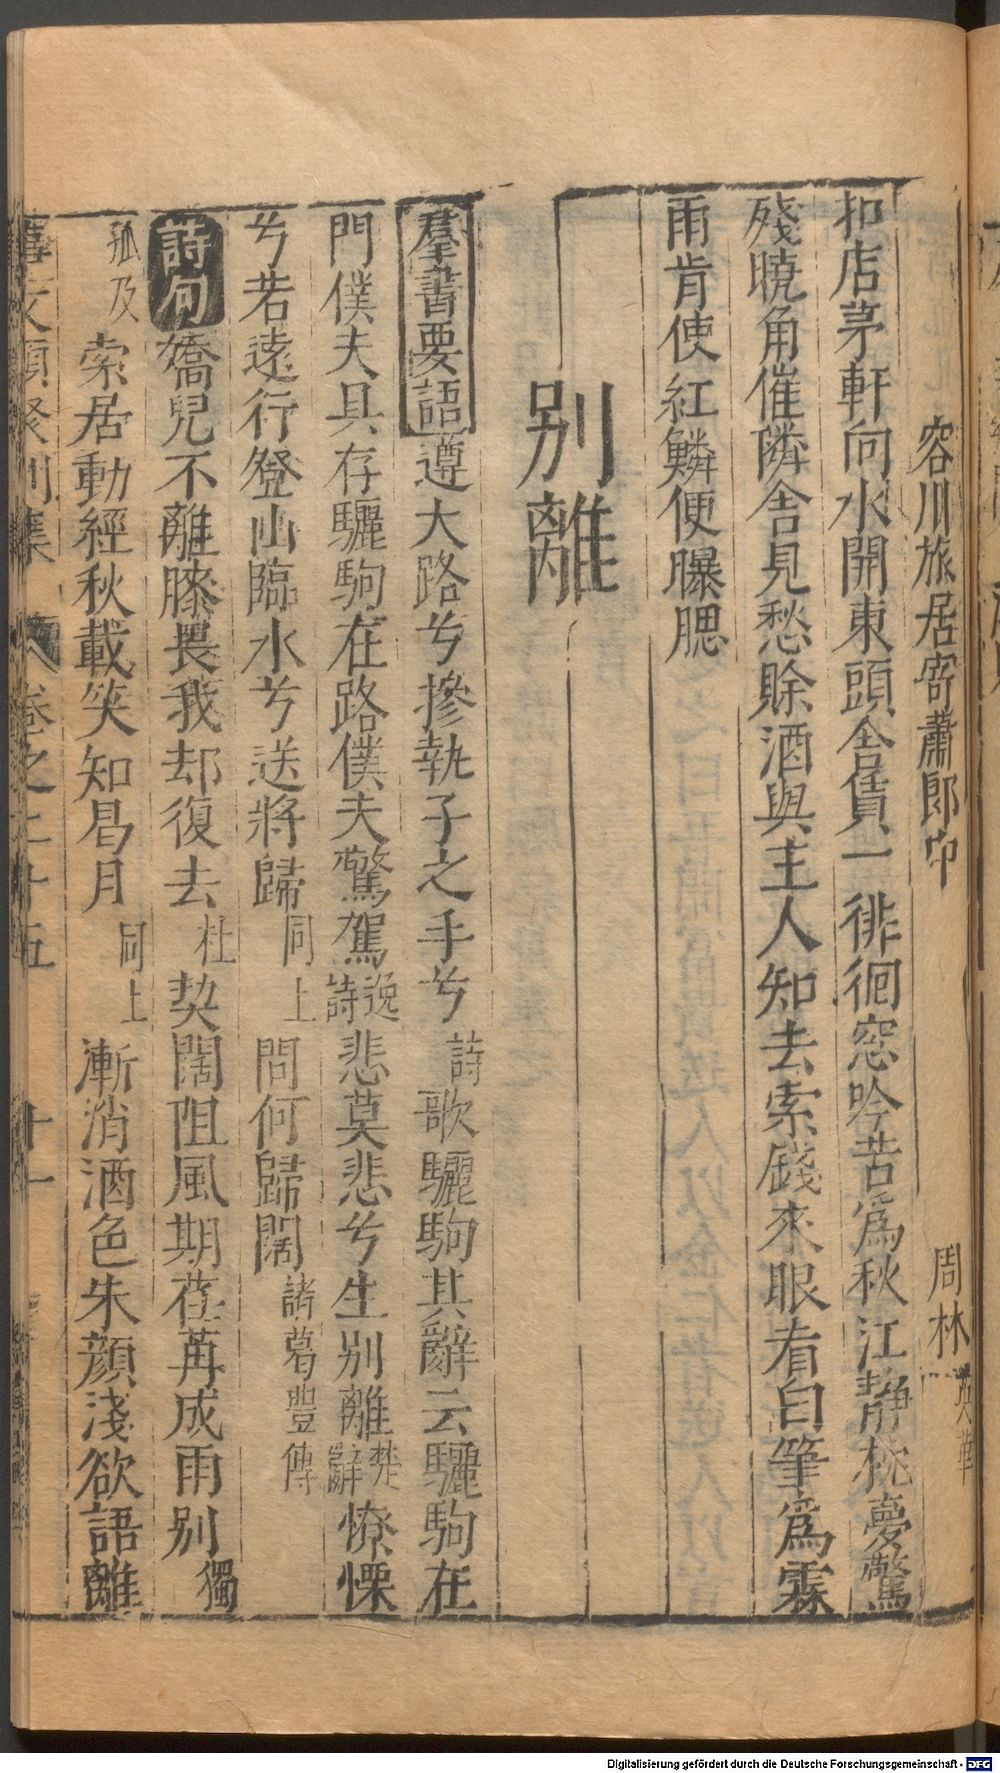 容川旅居寄蕭郎中
周林
英華
扣店茅軒向水開東頭舎賃一徘徊窓吟苦爲秋江静枕夢驚
殘曉角催隣舎見愁賖酒與主人知去索錢來眼看白筆爲霖
雨肯使紅鱗便曝腮
别離
羣書要語遵大路兮摻執子之手兮詩歌驪駒其辭云驪駒在
門僕夫具存驪駒在路僕夫驚駕逸詩悲莫悲兮生别離楚辭憭慄
兮若遠行登山臨水兮送將歸同上問何歸闊諸葛豐傳
詩句嬌兒不離膝畏我却復去杜契闊阻風期荏苒成雨别獨
孤及索居動經秋載笑知曷月同上漸消酒色朱顔淺欲語離
事文類聚別集 卷之二十五 十一
Digitalisierung gefördert durch die Deutsche Forschungsgemeinschaft - DFG